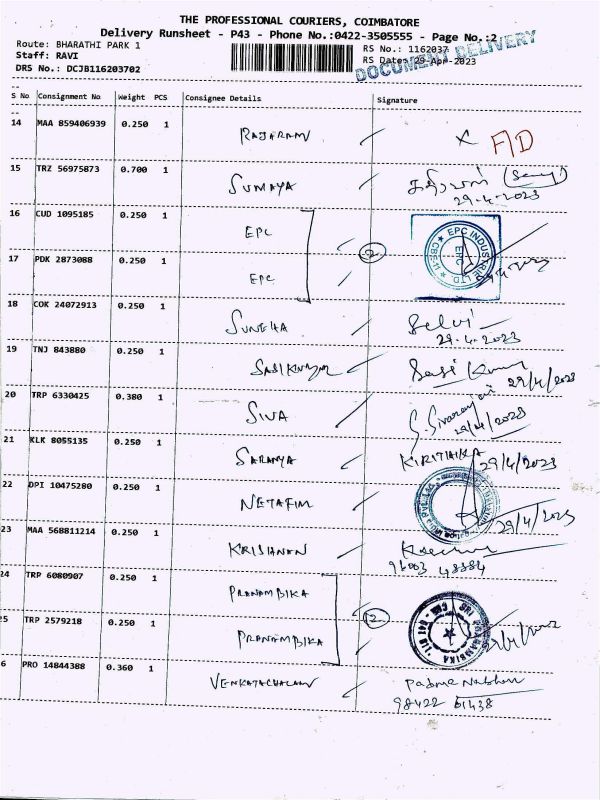 THE PROFESSIONAL COURIERS, COIMBATORE
Delivery Runsheet - P43 - Phone No.:0422-3505555 - Page No.:2
Route: BHARATHI PARK 1
RS No.: 1162037
Staff: RAVI
RS Date: 29-Apr-2023
DRS No.: DCJB116203702
DOCUMENT DELIVERY
S No Consignment No Weight PCS Consignee Details Signature
14 MAA 859406939 0.250 1 RAJARAM X F/D
15 TRZ 56975873 0.700 1 SUMAYA
29-4-2023
16 CUD 1095185 0.250 1 EPC
EPC INDUSTRIE LTD.
17 PDK 2873088 0.250 1 EPC
2
18 COK 24072913 0.250 1 SUNEHA Selvi
29-4-2023
19 TNJ 843880 0.250 1 SASIKUMAR Sasi Kumar 29/4/2023
20 TRP 6330425 0.380 1 SIVA
29/4/2023
21 KLK 8055135 0.250 1 SARANYA KIRITHIKA 29/4/2023
22 DPI 10475280 0.250 1 NETAFIM 29/4/2023
23 MAA 568811214 0.250 1 KRISHNAN
96003 48384
24 TRP 6080907 0.250 1 PRANAMBIKA
2
25 TRP 2579218 0.250 1 PRANAMBIKA
6 PRO 14844388 0.360 1 VENKATACHALAM
98422 61438